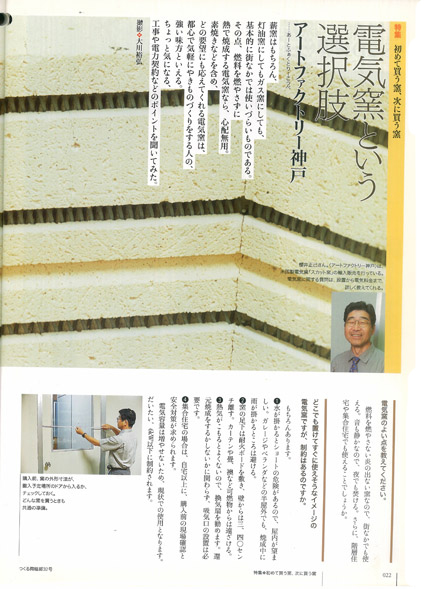 特集 初めて買う窯、次に買う窯
電気窯という
選択肢
アートファクトリー神戸
あーとふぁくとりーこうべ
薪窯はもちろん、
灯油窯にしてもガス窯にしても、
基本的に街なかでは使いづらいものである。
その点、燃料を燃やさずに
熱で焼成する電気窯なら、心配無用。
素焼きなどを含め、
どの要望にも応えてくれる電気窯は、
都心で気軽にやきものづくりをする人の、
強い味方といえる。
ちょっと気になる、
工事や電力契約などのポイントを聞いてみた。
撮影◆大川裕弘
櫻井正さん。〈アートファクトリー神戸〉は、
米国製電気窯「スカット窯」の輸入販売を行っている。
電気窯に関する質問は、設置から電気料金まで、
詳しく教えてくれる。
電気窯のよい点を教えてください。
燃料を燃やさない炎の出ない窯なので、街なかでも使
える。音も静かなので、夜でも焚ける。さらに、高層住
宅や集合住宅でも使えることでしょうか。
どこでも置けてすぐに使えそうなイメージの
電気窯ですが、制約はあるのですか。
もちろんあります。
❶水が掛かるとショートの危険があるので、屋内が望ま
しい。ガレージやベランダなどの半屋外でも、焼成中に
雨が掛かるところは避ける。
❷窯の足下は耐火ボードを敷き、壁からは三、四〇セン
チ離す。カーテンや畳、襖など可燃物からは遠ざける。
❸熱気がこもるとよくないので、換気扇を勧めます。還
元焼成をするかしないかに関わらず、吸気口の設置は必
要です。
❹集合住宅の場合は、自宅以上に、購入前の現場確認と
安全対策が求められます。
電気容量は増やせないため、現状での使用となります。
だいたい、8㎾以下に制限されます。
購入前、窯の外形寸法が、
搬入予定場所のドアから入るか、
チェックしておく。
どんな窯を買うときも
共通の準備。
つくる陶磁郎30号
特集◆初めて買う窯、次に買う窯
022